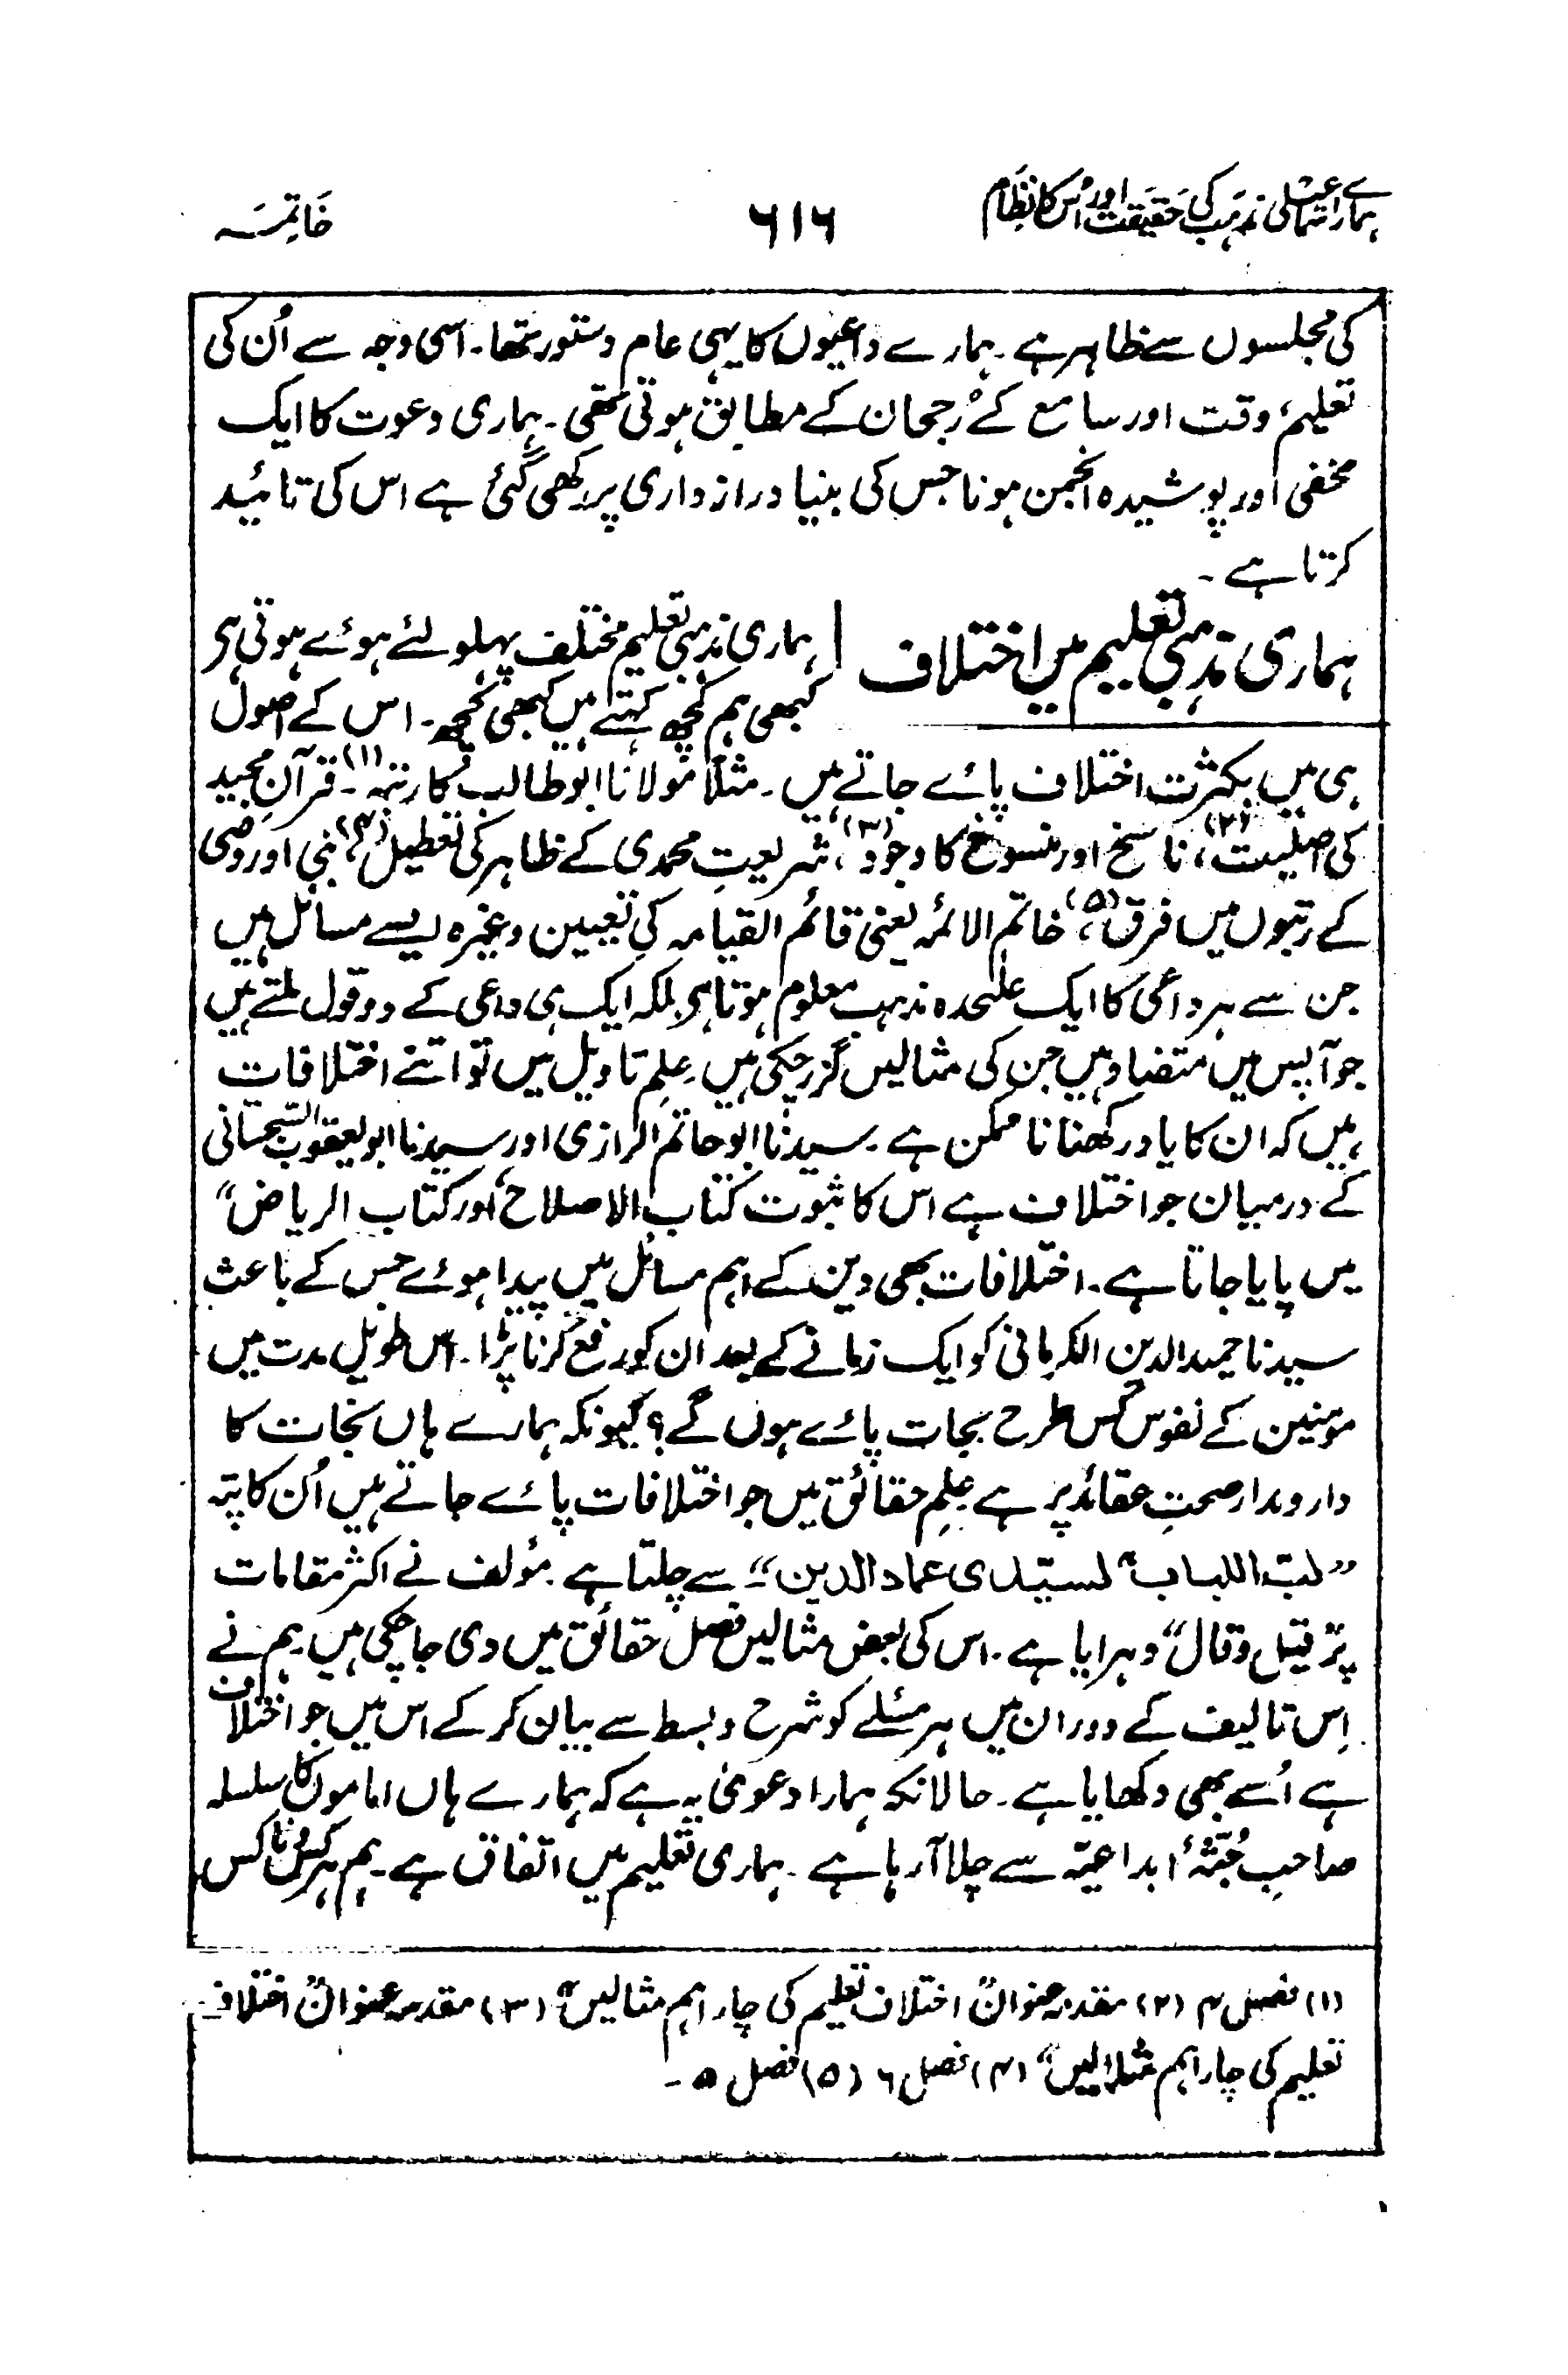 ہمارے اسماعیلی مذہب کی حقیقت اور اُس کا نظام
۶۱۶
خاتمہ
کی مجلسوں سے ظاہر ہے۔ ہمارے داعیوں کا یہی عام دستور تھا۔ اسی وجہ سے اُن کی
تعلیم وقت اور سامع کے رجحان کے مطابق ہوتی تھی۔ ہماری دعوت کا ایک
مخفی اور پوشیدہ انجمن ہونا جس کی بنیاد رازداری پر رکھی گئی ہے اس کی تائید
کرتا ہے۔
ہماری مذہبی تعلیم میں اختلاف
ہماری مذہبی تعلیم مختلف پہلو لئے ہوئے ہوتی ہی
کبھی ہم کچھ کہتے ہیں کبھی کچھ۔ اس کے اصول
ہی میں بکثرت اختلاف پائے جاتے ہیں۔ مثلاً مولانا ابوطالب کا رتبہ(۱)۔ قرآنِ مجید
کی اصلیت(۲)، ناسخ اور منسوخ کا وجود(۳)، شریعتِ محمدی کے ظاہر کی تعطیل(۴)، نبی اور وصی
کے رتبوں میں فرق(۵)، خاتم الائمہ یعنی قائم القیامہ کی تعیین وغیرہ ایسے مسائل ہیں
جن سے ہر داعی کا ایک علٰحدہ مذہب معلوم ہوتا ہی بلکہ ایک ہی داعی کے دو قول ملتے ہیں
جو آپس میں متضاد ہیں جن کی مثالیں گزر چکی ہیں۔ علمِ تاویل میں تو اتنے اختلافات
ہیں کہ ان کا یاد رکھنا ناممکن ہے۔ سیدنا ابوحاتم الرازی اور سیدنا ابو یعقوب السجستانی
کے درمیان جو اختلاف ہے اس کا ثبوت کتاب الاصلاح، اور کتاب الریاض“
میں پایا جاتا ہے۔ اختلافات بھی دین کے اہم مسائل میں پیدا ہوئے جس کے باعث
سیدنا حمید الدین الکرمانی کو ایک زمانے کے بعد ان کو رفع کرنا پڑا۔ اس طویل مدت میں
مومنین کے نفوس کس طرح نجات پائے ہوں گے؟ کیونکہ ہمارے ہاں نجات کا
دارومدار صحتِ عقائد پر ہے علمِ حقائق میں جو اختلافات پائے جاتے ہیں اُن کا پتہ
”لبّ اللباب“ لسیّدی عماد الدین“ سے چلتا ہے۔ مؤلف نے اکثر مقامات
پر ”قیل وقال“ دہرایا ہے۔ اس کی بعض مثالیں فصل حقائق میں دی جا چکی ہیں۔ ہم نے
اِس تالیف کے دوران میں ہر مسئلے کو شرح وبسط سے بیان کر کے اس میں جو اختلاف
ہے اُسے بھی دکھایا ہے۔ حالانکہ ہمارا دعویٰ یہ ہے کہ ہمارے ہاں اماموں کا سلسلہ
صاحبِ جُثّۂ ابداعیّہ سے چلا آرہا ہے۔ ہماری تعلیم میں اتفاق ہے۔ ہم ہر کس و ناکس
(۱) فصل ۴ (۲) مقدمہ عنوان ”اختلاف تعلیم کی چار اہم مثالیں“ (۳) مقدمہ عنوان ”اختلاف
تعلیم کی چار اہم مثالیں“ (۴) فصل ۶ (۵) فصل ۵۔